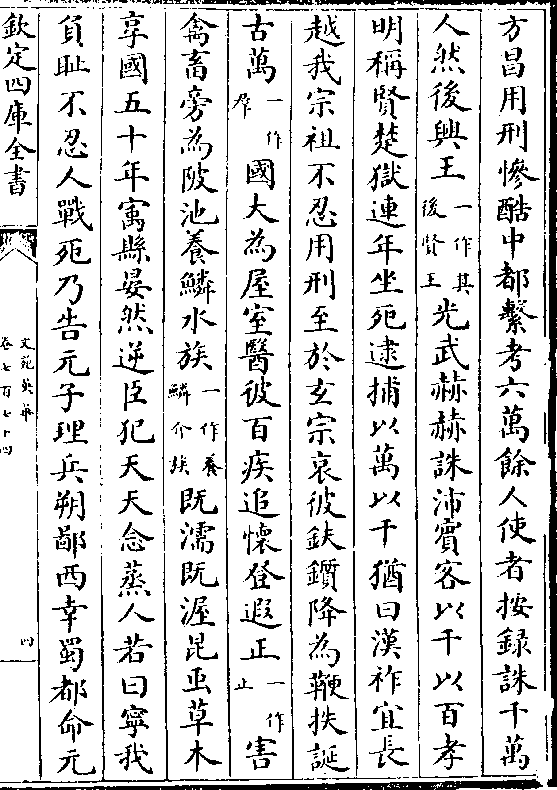 方昌用刑慘酷中都繫考六萬餘人使者按録誅千萬
人然後興王一作其後賢王光武赫赫誅沛賓客以千以百孝
明稱賢楚獄連年坐死逮捕以萬以千猶曰漢祚宜長
越我宗祖不忍用刑至於玄宗哀彼鈇鑕降為鞭抶誕
古萬一作羣國大為屋室醫彼百疾追懷登遐正一作止害
禽畜旁為陂池養鱗水族一作養鱗介族既濡既渥昆䖝草木
享國五十年寓縣晏然逆臣犯天天念蒸人若曰寧我
負耻不忍人戰死乃告元子理兵朔鄙西幸蜀都命元
欽定四庫全書
文苑英華
卷七百七十四
四